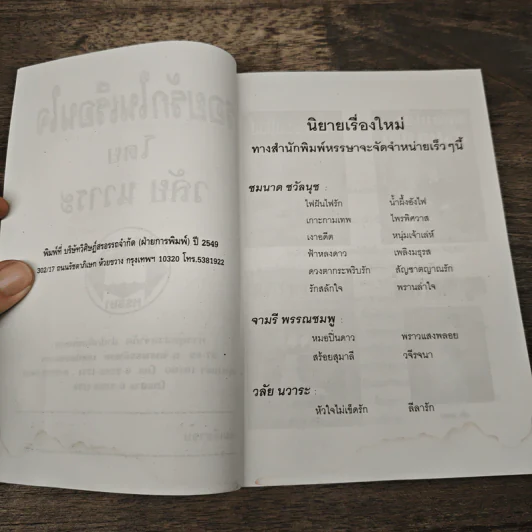 พิมพ์ที่ บริษัทวิศิษฎ์สรอรรถจำกัด (ฝ่ายการพิมพ์) ปี 2549
302/17 ถนนรัชดาภิเษก ห้วยขวาง กรุงเทพฯ 10320 โทร.5381922
นิยายเรื่องใหม่
ทางสำนักพิมพ์หรรษาจะจัดจำหน่ายเร็วๆนี้
ชมนาด ชวัลนุช :
ไฟฝันไฟรัก น้ำผึ้งอังไฟ
เกาะกามเทพ ไพรพิศวาส
เงาอดีต หนุ่มเจ้าเล่ห์
ฟ้าหลงดาว เพลิงมธุรส
ดวงตากระพริบรัก สัญชาตญาณรัก
รักสลักใจ พรานล่าใจ
จามรี พรรณชมพู :
หมอปิ่นดาว พราวแสงพลอย
สร้อยสุมาลี วจีรจนา
วลัย นวาระ :
หัวใจไม่เข็ดรัก ลีลารัก